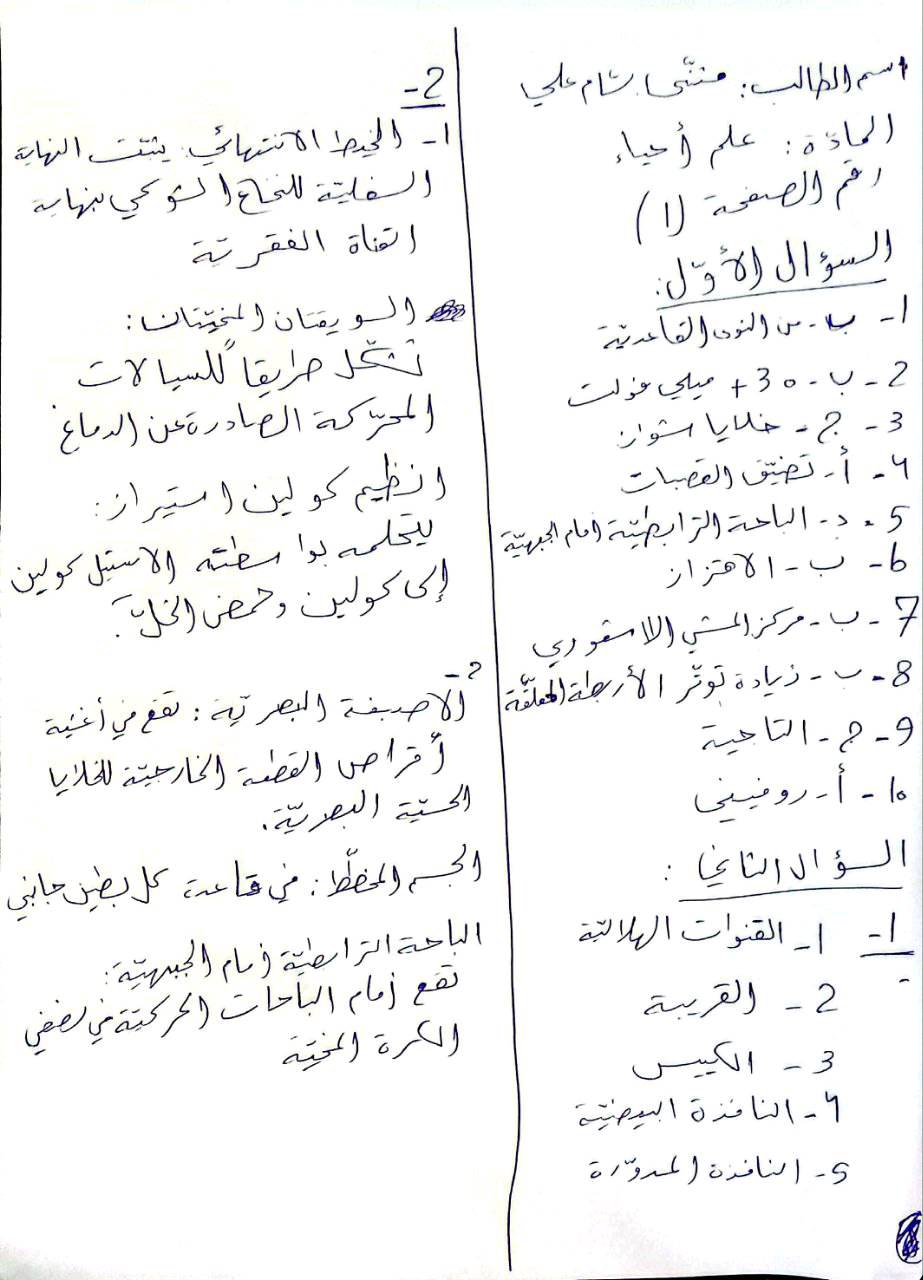 اسم الطالب: مثنّى بشام علي
المادّة: علم أحياء
رقم الصفحة (1)
السؤال الأوّل:
1- ب- من النوى القاعديّة
2- ب- 30+ ميلي فولت
3- ج- خلايا شوان
4- أ- تضيّق القصبات
5- د- الباحة الترابطيّة أمام الجبهيّة
6- ب- الاهتزاز
7- ب- مركز المشي الاشعوري
8- ب- زيادة توتّر الأربطة المعلّقة
9- ج- التاجية
10- أ- روفيني
السؤال الثاني:
1- 1- القنوات الهلاليّة
2- القريبة
3- الكييس
4- النافذة البيضيّة
5- النافذة المدوّرة
2-
1- الخيط الانتهائي: يثبّت النهاية
السفليّة للنخاع الشوكي بنهاية
القناة الفقريّة
السويقتان المخيّتان:
تشكّل طريقاً للسيالات
المحرّكة الصادرة عن الدماغ
انظيم كولين استيراز:
يتحلمه بواسطته الاستيل كولين
إلى كولين وحمض الخلّ.
2-
الأصبغة البصريّة: تقع في أغشية
أقراص القطعة الخارجيّة للخلايا
الحسيّة البصريّة.
الجسم المخطّط: في قاعدة كل بطين جانبي
الباحة الترابطيّة أمام الجبهيّة:
تقع أمام الباحات الحركيّة في نصفي
الكرة المخيّة